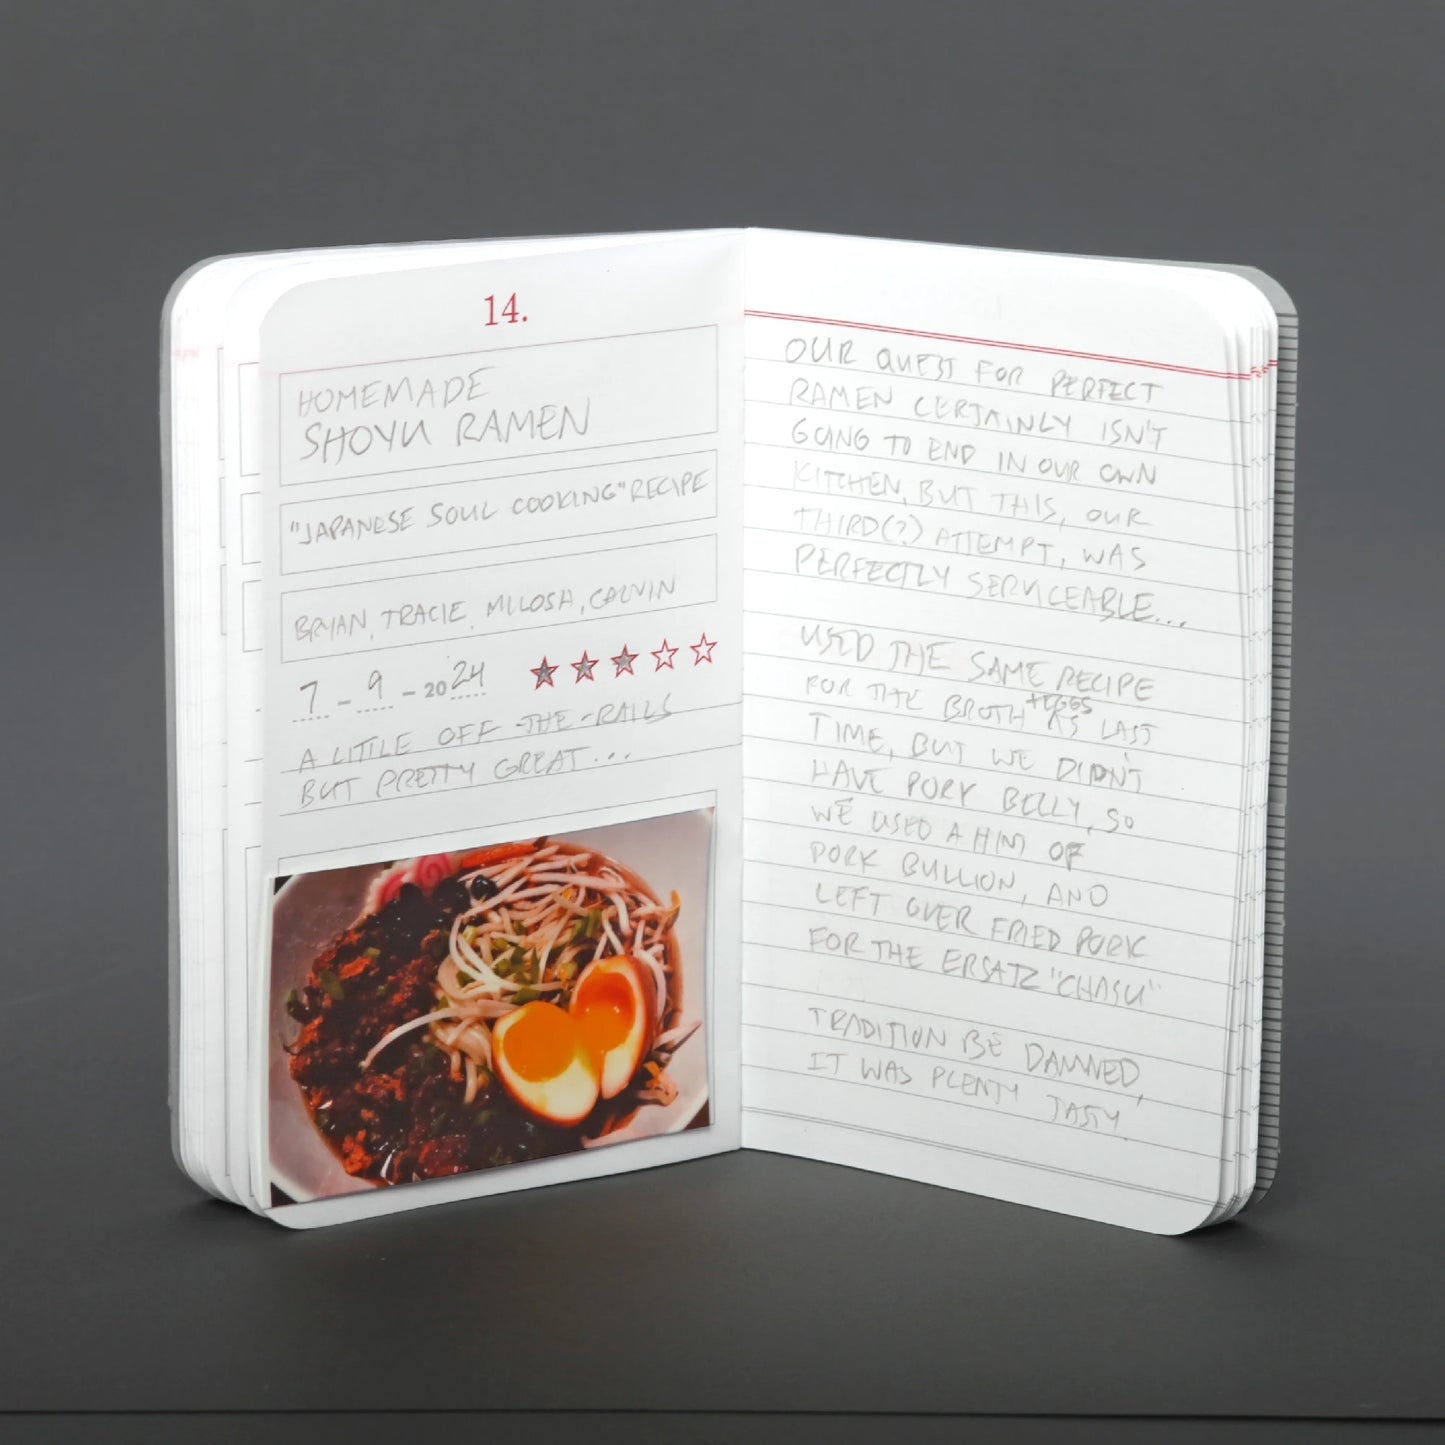 14.
HOMEMADE
SHOYU RAMEN
"JAPANESE SOUL COOKING" RECIPE
BRYAN, TRACIE, MILOSH, CALVIN
7 - 9 - 2024
A LITTLE OFF-THE-RAILS
BUT PRETTY GREAT...
OUR QUEST FOR PERFECT
RAMEN CERTAINLY ISN'T
GOING TO END IN OUR OWN
KITCHEN, BUT THIS, OUR
THIRD(?) ATTEMPT, WAS
PERFECTLY SERVICEABLE...
USED THE SAME RECIPE
FOR THE BROTH +EGGS AS LAST
TIME, BUT WE DIDN'T
HAVE PORK BELLY, SO
WE USED A HINT OF
PORK BULLION, AND
LEFT OVER FRIED PORK
FOR THE ERSATZ "CHASU"
TRADITION BE DAMNED,
IT WAS PLENTY TASTY.